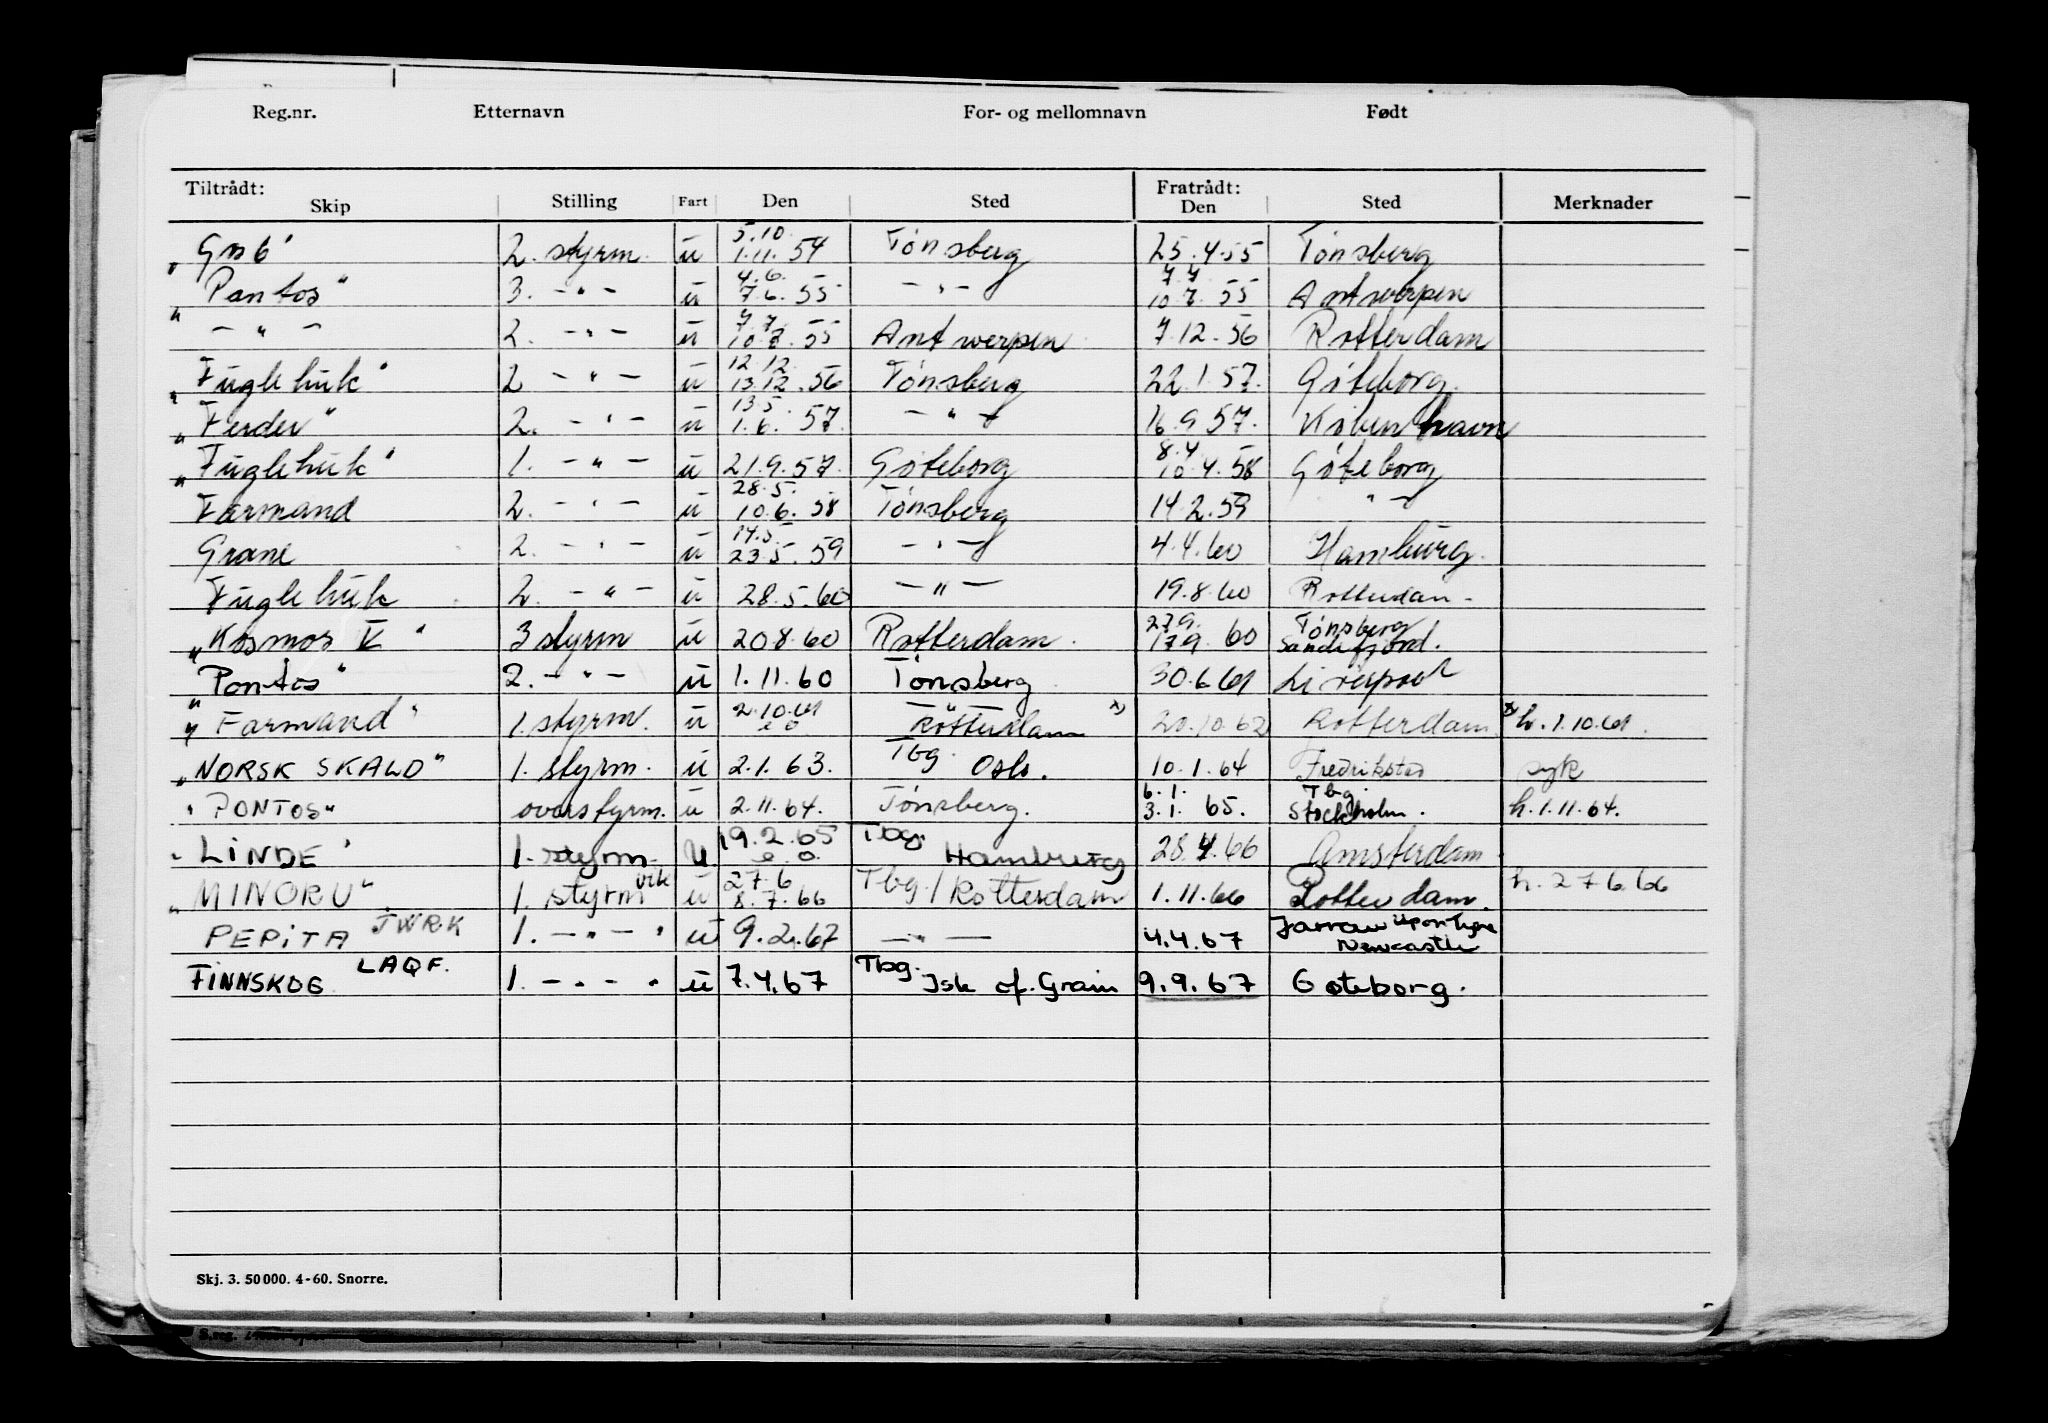 Reg.nr. Etternavn For- og mellomnavn Født
Tiltrådt: Fratrådt:
Skip Stilling Fart Den Sted Den Sted Merknader
5.10.
2. styrm. ü 1.11.54 Tönsberg 25.4.55 Tönsberg
4.6. 7.7
"Pontos" 3. -"- ü 7.6.55 -"- 10.7.55 Antwerpen
7.7.
-"- 2. -"- ü 10.7.55 Antwerpen 7.12.56 Rotterdam
12.12.
"Fuglehuk" 2 -"- ü 13.12.56 Tönsberg 22.1.57. Göteborg.
13.5.
"Ferder" 2. -"- ü 1.6.57. -"- 16.9.57. København
8.4
"Fuglehuk" 1. -"- ü 21.9.57. Göteborg 10.4.58 Göteborg
28.5.
Farmand 2. -"- ü 10.6.58 Tönsberg 14.2.59 "-
14.5.
Grane 2. -"- ü 23.5.59 -"- 4.4.60 Hamburg.
Fuglehuk 2. -"- ü 28.5.60 -"- 19.8.60 Rotterdam -
27.9. Tönsberg
"Kosmos V" 3 styrm ü 20.8.60 Rotterdam. 17.9.60 Sandefjord.
"Pontos" 2. -"- ü 1.11.60 Tönsberg 30.6.61 Liverpool
"Farmand" 1. styrm. ü 2.10.61 Rotterdam x) 20.10.62 Rotterdam x) h. 1.10.61.
Tbg.
"NORSK SKALD" 1. styrm. ü 2.1.63. Oslo. 10.1.64 Fredrikstad syk
6.1. Tbg.
"PONTOS" overstyrm. ü 2.11.64. Tönsberg. 3.1.65. Stockholm. h. 1.11.64.
19.2.65 Tbg.
"LINDE" 1. styrm. ü Hamburg 28.4.66 Amsterdam.
vik 27.6
"MINORU" 1. styrm ü 8.7.66 Tbg./Rotterdam 1.11.66 Rotterdam. h. 27.6.66
PEPITA JWRK 1. -"-" ü 9.2.67 -"- 4.4.67 Jarrow upon Tyne
Newcastle
LAQF. Tbg.
FINNSKOG 1. -"-" ü 7.4.67 Isle of. Grain 9.9.67 Göteborg.
Skj. 3. 50 000. 4-60. Snorre.